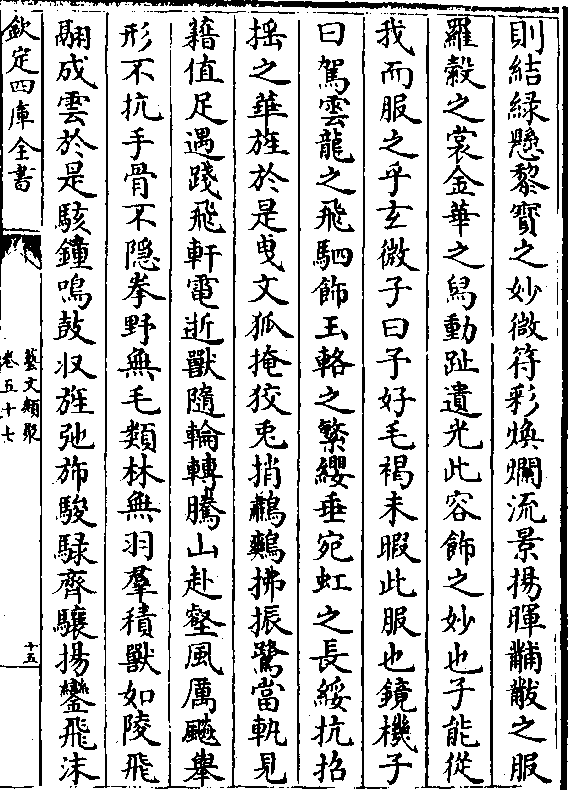 則結緑懸黎寳之妙微符彩煥爛流景揚暉黼黻之服
羅縠之裳金華之舄動趾遺光此容飾之妙也子能從
我而服之乎玄微子曰予好毛褐未暇此服也鏡機子
曰駕雲龍之飛駟飾玉輅之繁纓垂宛虹之長綏抗招
揺之華旌於是曵文狐掩狡兎捎鷫鷞拂振鷺當軌見
藉值足遇踐飛軒電逝獸隨輪轉騰山赴壑風厲飈舉
形不抗手骨不隠拳野無毛類林無羽羣積獸如陵飛
翮成雲於是駭鐘鳴鼓収旌弛斾駿騄齊驤揚鑾飛沬
欽定四庫全書
藝文類聚
卷五十七
十五